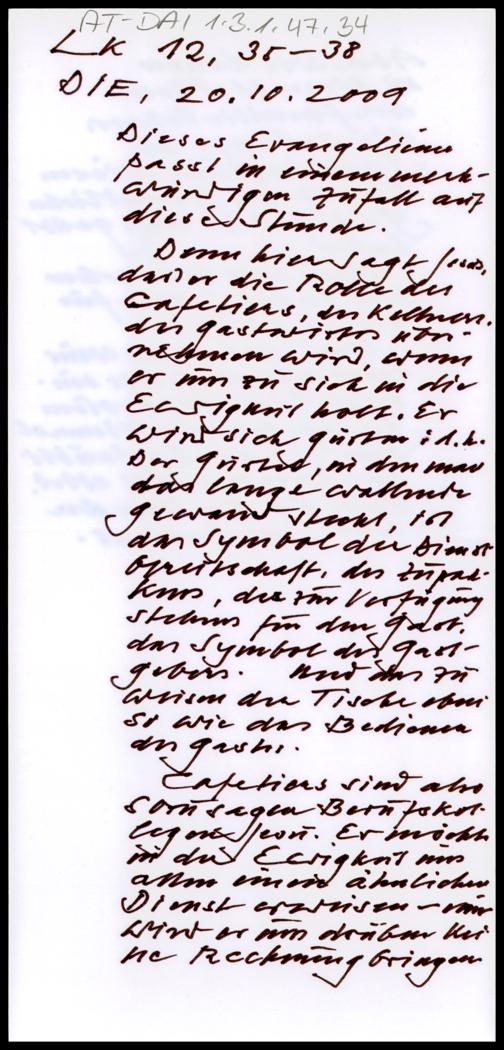 AT-DAI 1.3.1.47.34
LK 12, 35-38
DIE, 20.10.2009
Dieses Evangelium
passt in einem merk-
würdigen Zufall auf
diese Stunde.
Denn hier sagt Jesus,
dass er die Rolle des
Cafetiers, des Kellners,
des Gastwirtes über-
nehmen wird, wenn
er uns zu sich in die
Ewigkeit holt. Er
wird sich gürten: d.h.
Der Gürtel, in den man
das lange wallende
Gewand steckt, ist
das Symbol der Dienst
bereitschaft, des Zupak-
kens, des zur Verfügung
stehens für den Gast,
das Symbol des Gast-
gebers. Und das zu
weisen der Tische eben
so wie das Bedienen
des Gasts.
Cafetiers sind also
sozusagen Berufskol-
legen Jesu. Er möchte
in der Ewigkeit uns
allen einen ähnlichen
Dienst erweisen - nur
wird er uns drüben kei
ne Rechnung bringen